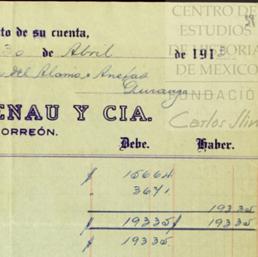 CENTRO DE
ESTUDIOS
DE HISTORIA
DE MEXICO
FUNDACIÓN
Carlos Slim
39
to de su cuenta,
30 de Abril de 1913
del Alamo y Anexas
Durango
ENAU Y CIA.
ORREÓN.
Debe. Haber.
15664
3671
19335
$ 19335 $ 19335
$ 19335